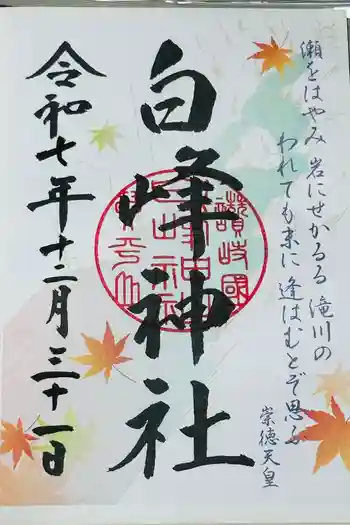 瀬をはやみ 岩にせかるる 滝川の
われても末に 逢はむとぞ思ふ
崇徳天皇
白峰神社
讃岐國
令和七年十二月三十一日